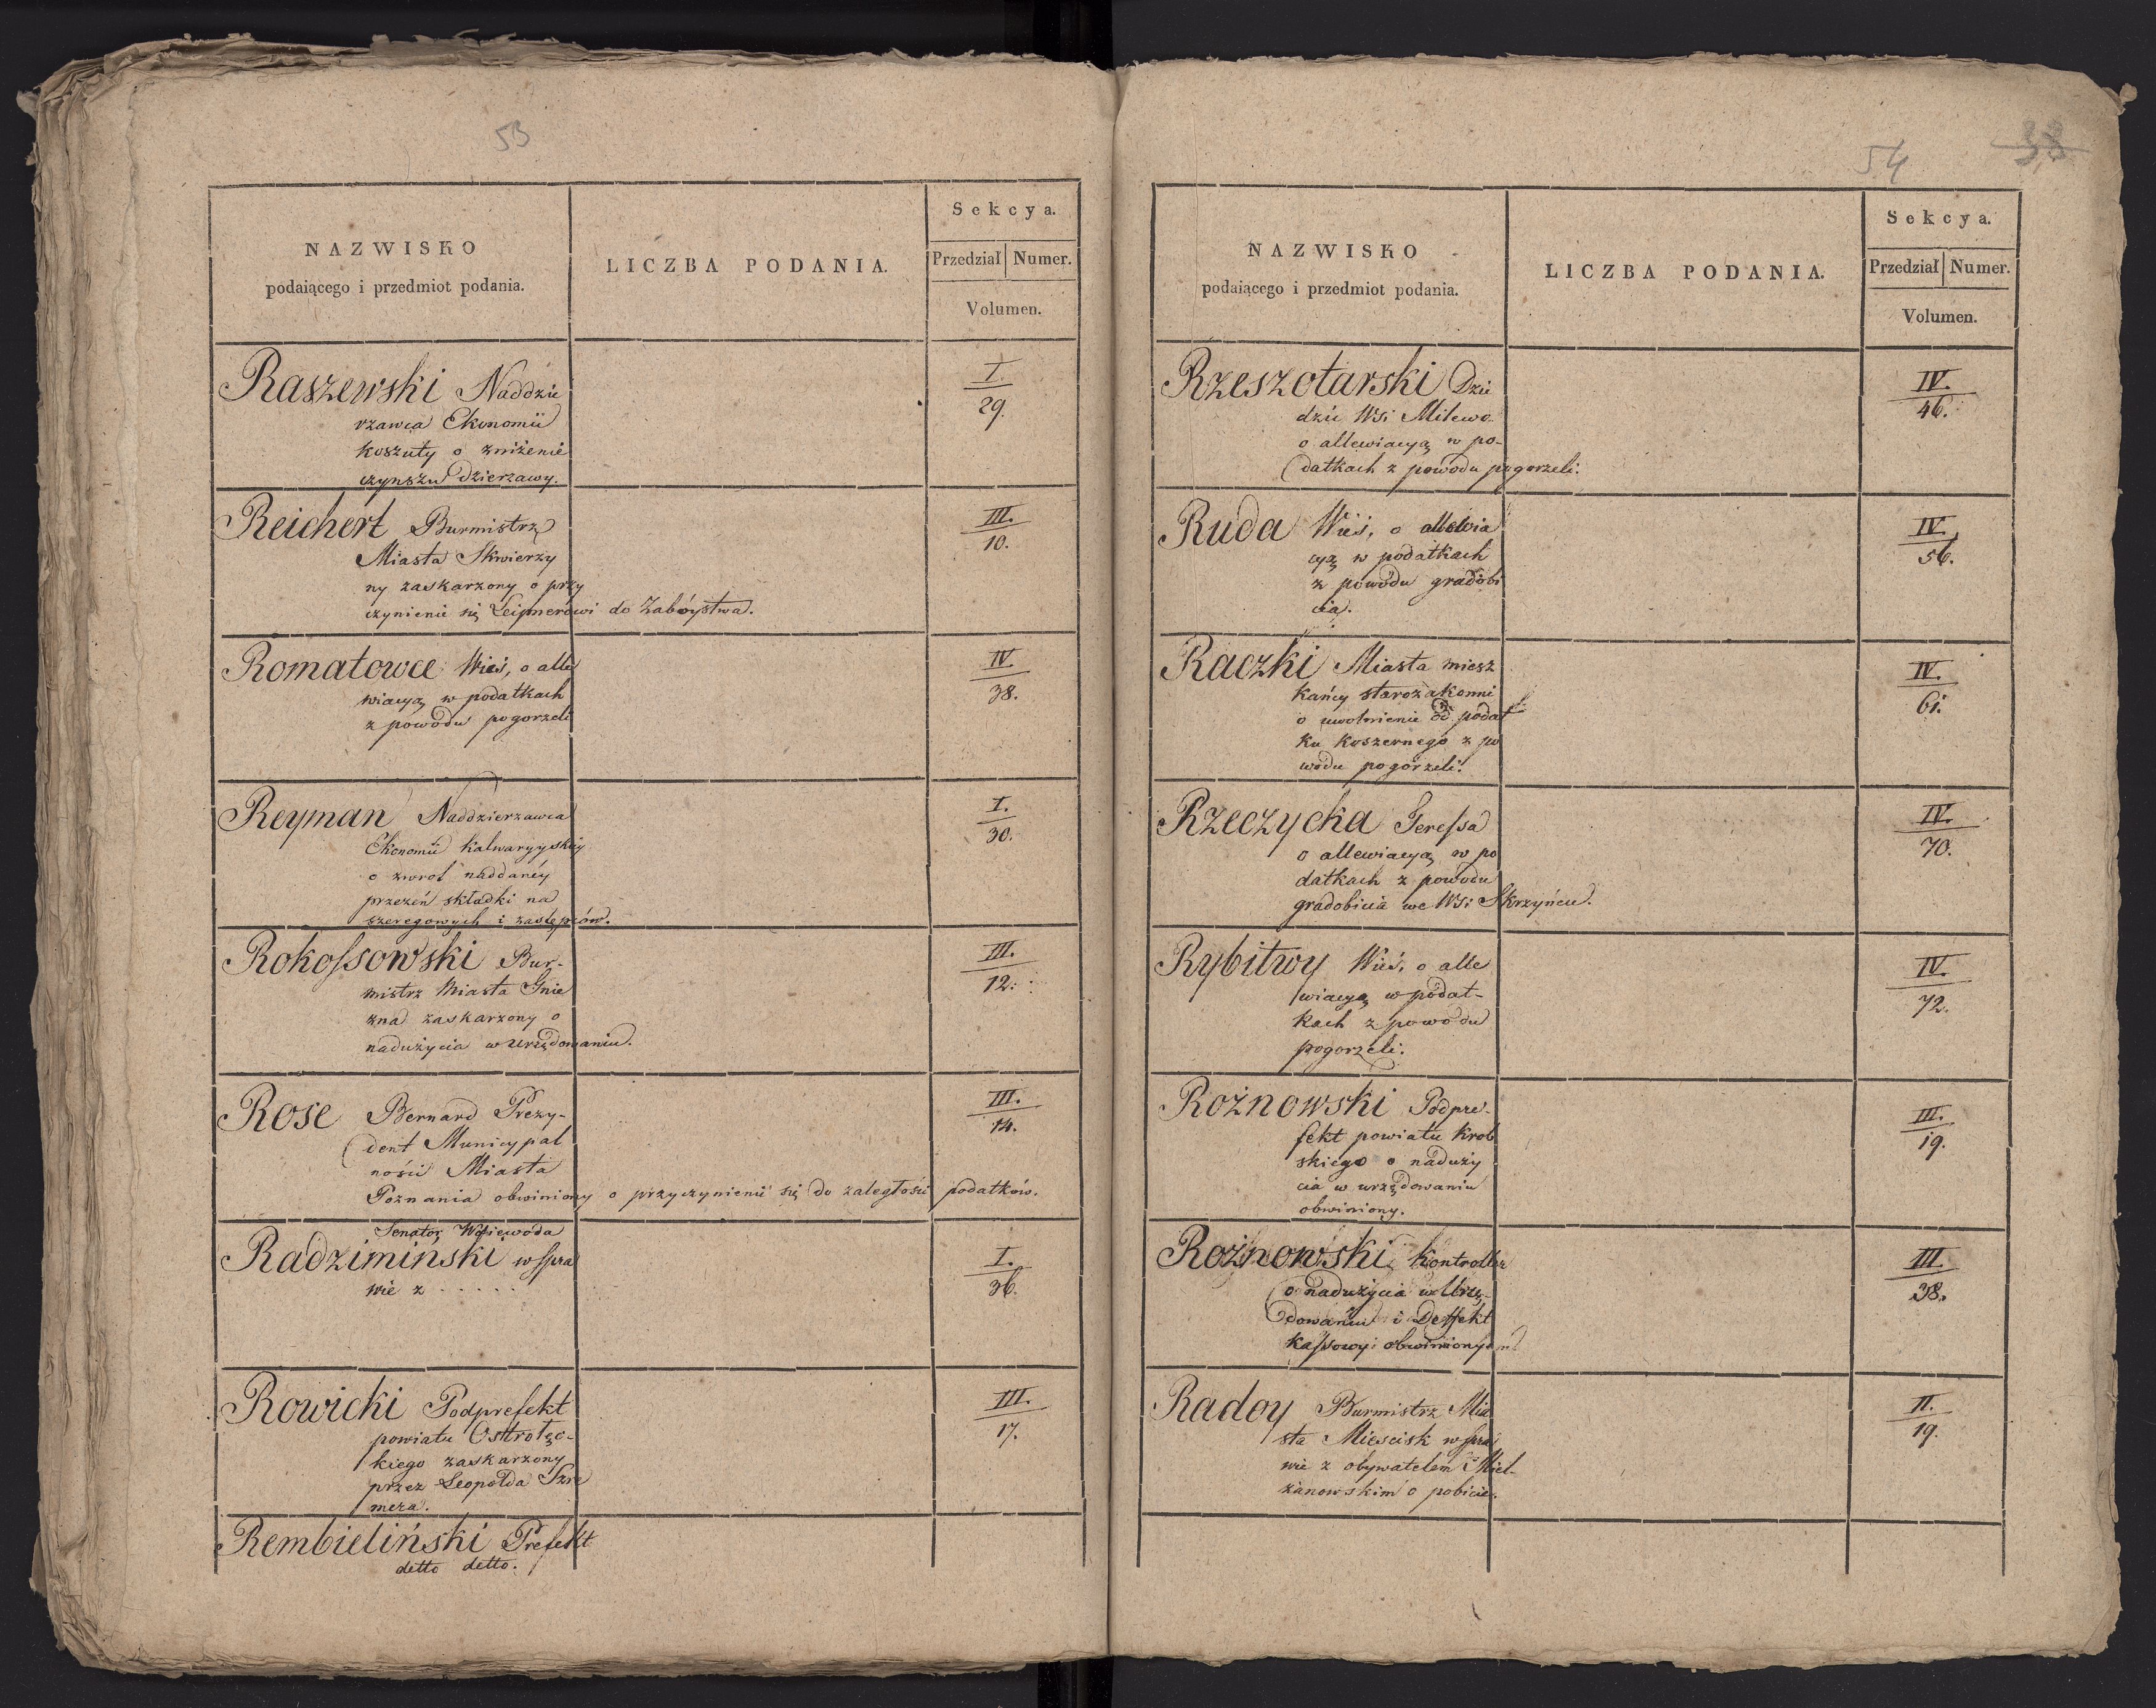 53
NAZWISKO
podaiącego i przedmiot podania.
LICZBA PODANIA.
Sekcya.
Przedział Numer.
Volumen.
Raszewski Naddzie
rzawca Ekonomii
Koszuty o zniżenie
czynszu Dzierzawy.
I.
29.
Reichert Burmistrz
Miasta Skwierzy
ny zaskarzony o przy
czynienie się Leipnerowi do Zabóystwa.
III.
10.
Romatowce Wieś, o alle
wiacyą w podatkach
z powodu pogorzeli
IV.
38.
Reyman Naddzierzawca
Ekonomii Kalwaryyskiey
o zwrot naddaney
przezeń składki na
szeregowych i zastępców.
I.
30.
Rokossowski Bur-
mistrz Miasta Gnie
zna zaskarzony o
nadużycia w Urzędowaniu.
III.
12.
Rose Bernard Prezy-
dent Municypal
ności Miasta
Poznania obwiniony o przyczynienie się do zaległości podatków.
III.
14.
Senator Woiewoda
Radzimiński w spra
wie z . . . . .
I.
36.
Rowicki Podprefekt
powiatu Ostrołęc-
kiego zaskarzony
przez Leopolda Szre
mera.
III.
17.
Rembieliński Prefekt
detto detto.
54
38
NAZWISKO
podaiącego i przedmiot podania.
LICZBA PODANIA.
Sekcya.
Przedział Numer.
Volumen.
Rzeszotarski Dzie
dzic Wsi Milewo
o allewiacyą w po-
datkach z powodu pogorzeli.
IV.
46.
Ruda Wieś, o allewia
cyą w podatkach
z powodu gradobi
cia.
IV.
56.
Raczki Miasta miesz
kańcy starozakonni
o uwolnienie od podat
ku koszernego z po
wodu pogorzeli.
IV.
61.
Rzeczycka Teressa
o allewiacyą w po
datkach z powodu
gradobicia we Wsi Skrzyńcu.
IV.
70.
Rybitwy Wieś, o alle
wiacyą w podat-
kach z powodu
pogorzeli.
IV.
72.
Rożnowski Podpre-
fekt powiatu Krob
skiego o naduży
cia w urzędowaniu
obwiniony.
III.
19.
Rożnowski, Kontroller
o nadużycia w Urzę-
dowaniu i Deffekt
kassowy obwiniony
III.
38.
Radoy Burmistrz Mia
sta Mieścisk w spra
wie z obywatelem Miel-
żanowskim o pobicie.
II.
19.